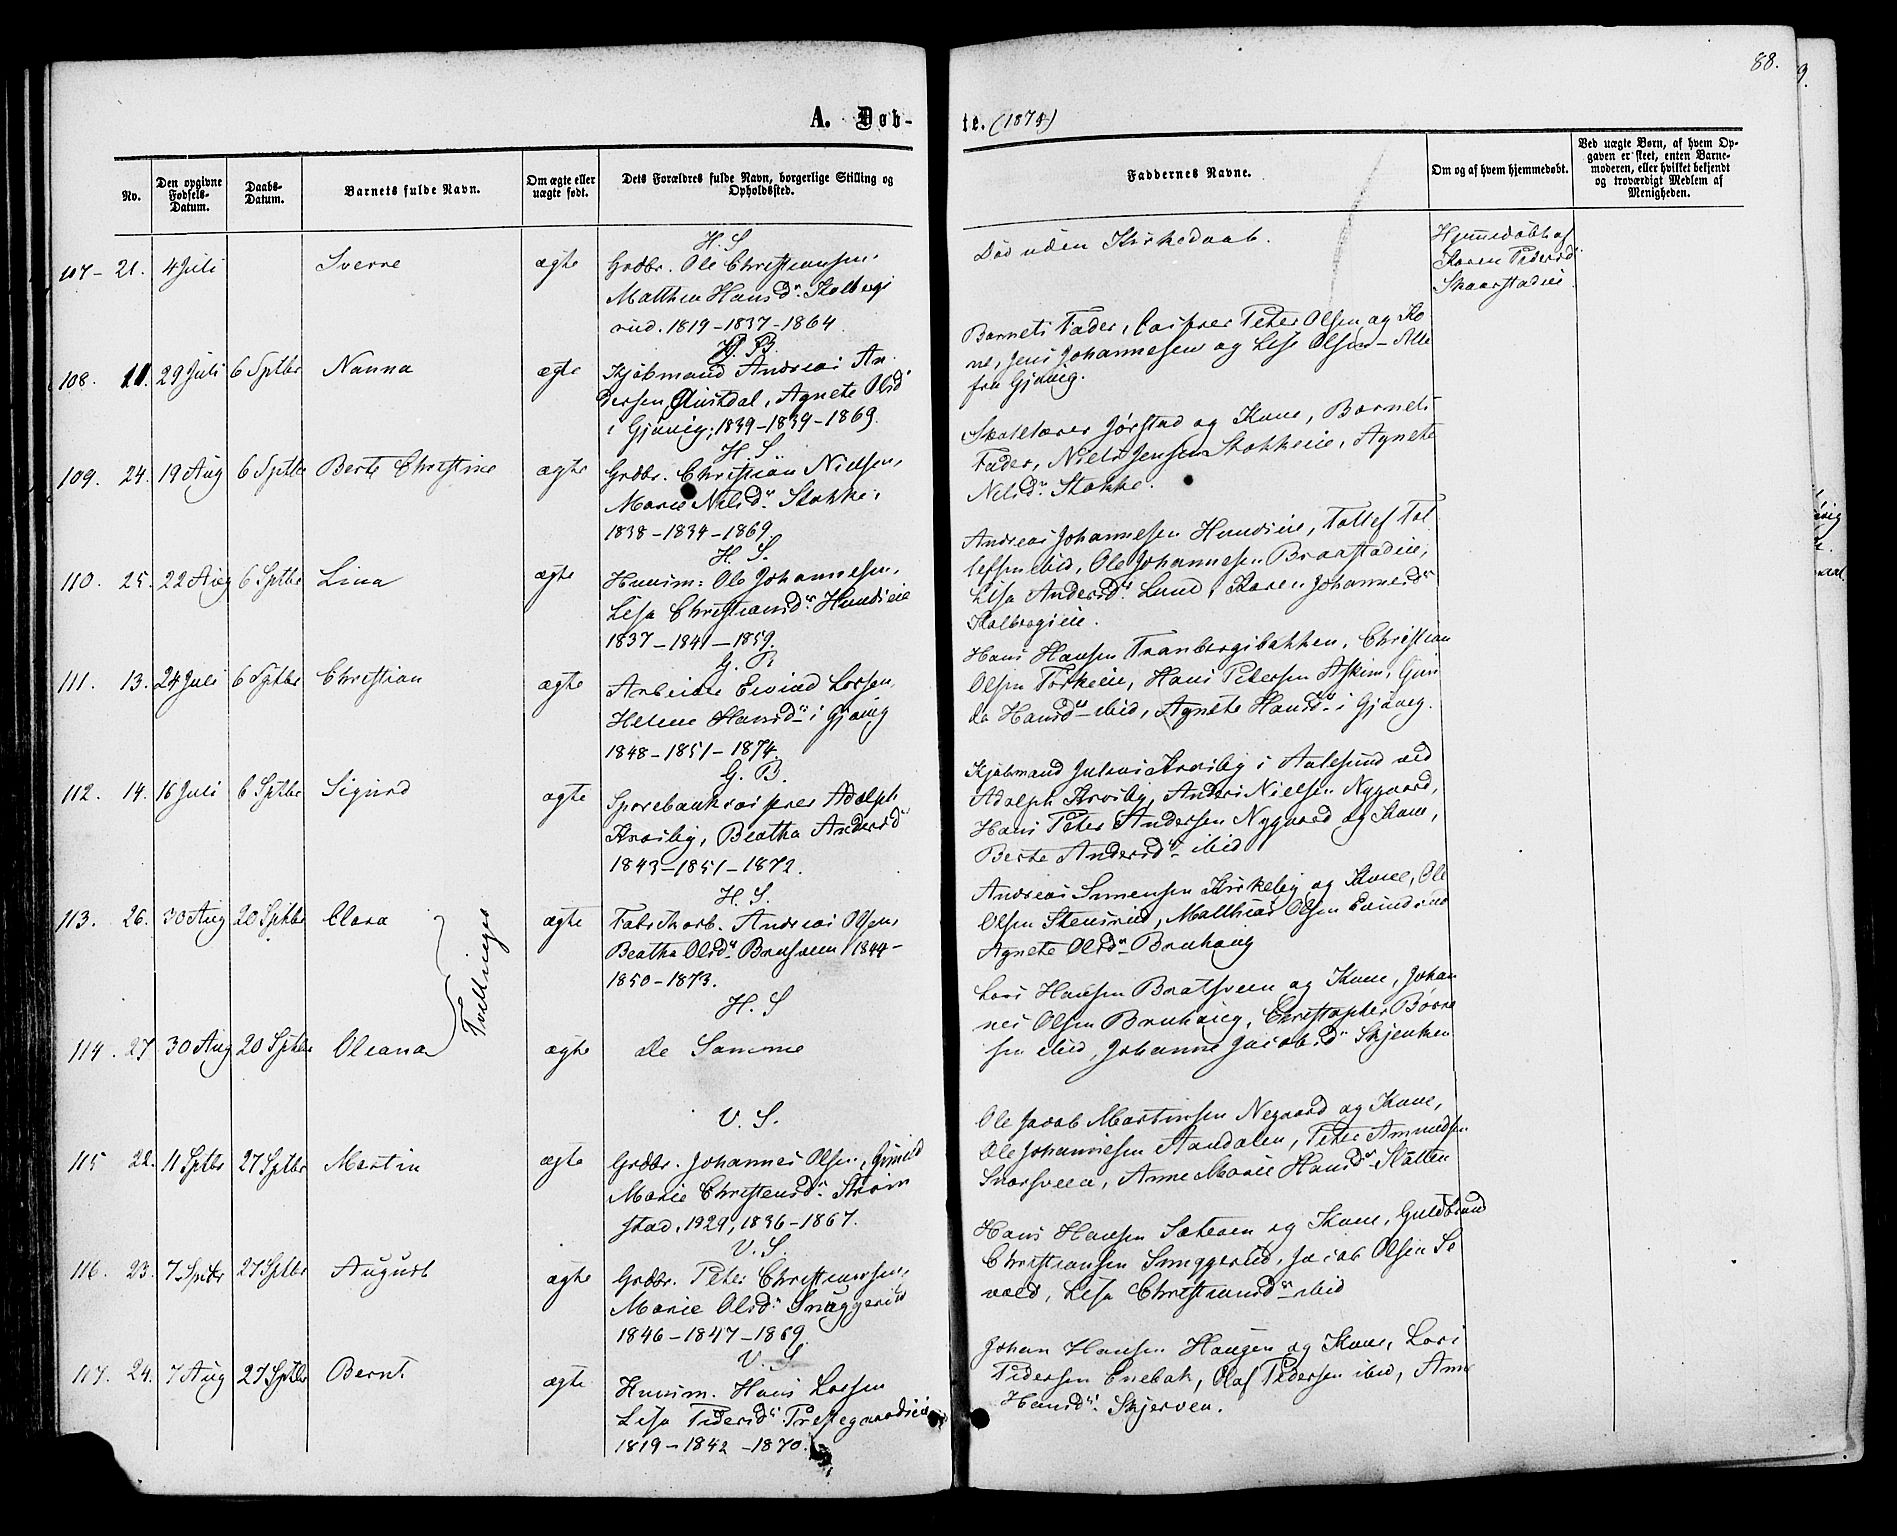 88.
A. Døb-
te. (1874)
No.
Den opgivne Fødsels-Datum.
Daabs-Datum.
Barnets fulde Navn.
Om ægte eller uægte født.
Dets Forældres fulde Navn, borgerlige Stilling og Opholdssted.
Faddernes Navne.
Om og af hvem hjemmedøbt.
Ved uægte Børn, af hvem Opgaven er skeet, enten Barnemoderen, eller hvilket bekjendt og troværdigt Medlem af Menigheden.
H. S
107- 21. 4 Juli Sverre ægte Grdbr. Ole Christiansen,
Matthea Hansdr.
rud. 1819-1837-1864.
Død uden Kirkedaab.
Hjemmedøbt af
Karen Pedersd
Skaarstadeie
G. B.
108. 11. 29 Juli 6 Sptbr Nanna ægte Kjøbmand Andreas An
dersen Austdal, Agnete Olsd
i Gjøvig, 1839-1839-1869.
Barnets Fader, Casserer Peter Olsen og Ko
ne, Jens Johannesen og Lise Olsen - Alle
fra Gjøvig.
H. S
109. 24. 19 Aug 6 Sptbr Berte Christine ægte Grdbr. Christian Nielsen,
Marie Nilsdr. Stokke,
1838-1834-1869.
Skolelærer Jørstad og Kone, Barnets
Fader, Niels Jensen Stokkeie, Agnete
Nilsdr. Stokke.
H. S.
110. 25. 22 Aug 6 Sptbr Lina ægte Huusm: Ole Johannesen,
Lisa Christiansdr. Hundseie
1837-1841-1859.
Andreas Johannesen Hundseie, Tollef Tol
lefsen ibid, Ole Johannesen Braastadeie,
Lisa Andersdr. Lund, Karen Johannesdr
G. B
111. 13. 24 Juli 6 Sptbr Christian ægte Arbeider Eivind Larsen,
Helene Hansdr. i Gjøvig
1848-1851-1874.
Hans Hansen Tranbergsbakken, Christian
Olsen, Hans Petersen Askim, Gun
da Hansdr ibid, Agnete Hansdr. i Gjøvig.
G. B.
112. 14. 16 Juli 6 Sptbr Sigurd ægte Sparebankcasserer Adolph
Krosby, Beatha Andersd
1843-1851-1872.
Kjøbmand Julius Krosby i Aalesund ved
Adolph Krosby, Anders Nielsen Nygaard,
Hans Peter Andersen Nygaard og Kone,
Berte Andersdr. ibid
H. S.
113. 26. 30 Aug 20 Sptbr Clara ægte Fabrikarb. Andreas Olsen,
Beatha Olsdr. Brusveen 1844-
1850-1873.
Andreas Simensen Kirkeby og Kone, Ole
Olsen Stensrud, Matthias Olsen Eivindsrud
Agnete Olsdr. Bruhaug
Tvillinger
H. S
114. 27 30 Aug 20 Sptbr Oleana ægte de Samme
Lars Hansen Bratsveen og Kone, Johan
nes Olsen Bruhaug, Christopher Børre
sen ibid, Johanne Jacobsdr Skjenken
V. S.
115 22. 11 Sptbr 27 Sptbr Martin ægte Grdbr. Johannes Olsen,
Marie Christensdr. Strøm
stad, 1929, 1836-1867.
Ole Jacob Martinsen Nygaard og Kone,
Ole Johannesen Aandalen, Peter Amundsen
Snarsveen, Anne Marie Hansdr. Slatten
V. S.
116. 23. 7 Sptbr 27 Sptbr August ægte Grdbr. Peter Christiansen,
Marie Olsdr. Snuggerud
1846-1847-1869.
Hans Hansen Sæteren og Kone, Guldbrand
Christiansen Snuggerud, Jacob Olsen Se
vald, Lisa Christiansdr. ibid
V. S
117. 24. 7 Aug 27 Sptbr Bernt ægte Huusm. Hans Larsen
Lisa Pedersdr. Prestegaardseie
1819-1842-1870.
Johan Hansen Haugen og Kone, Lars
Pedersen Enebak, Olaf Pedersen ibid, Anne
Hansdr. Skjerven.